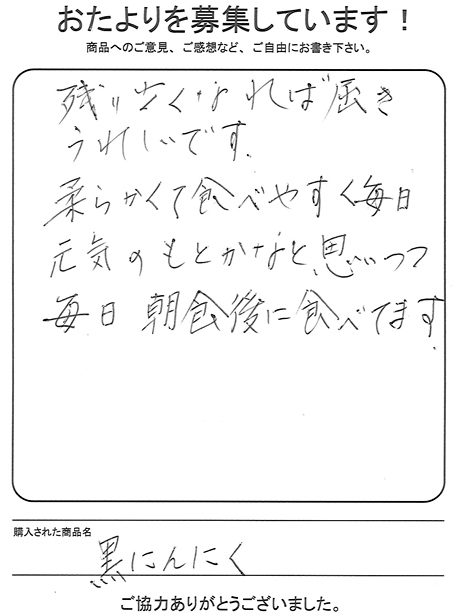 おたよりを募集しています！
商品へのご意見、ご感想など、ご自由にお書き下さい。
残りなくなれば届き
うれしいです.
柔らかくて食べやすく毎日
元気のもとかなと思いつつ
毎日 朝食後に食べてます.
購入された商品名
黒にんにく
ご協力ありがとうございました。